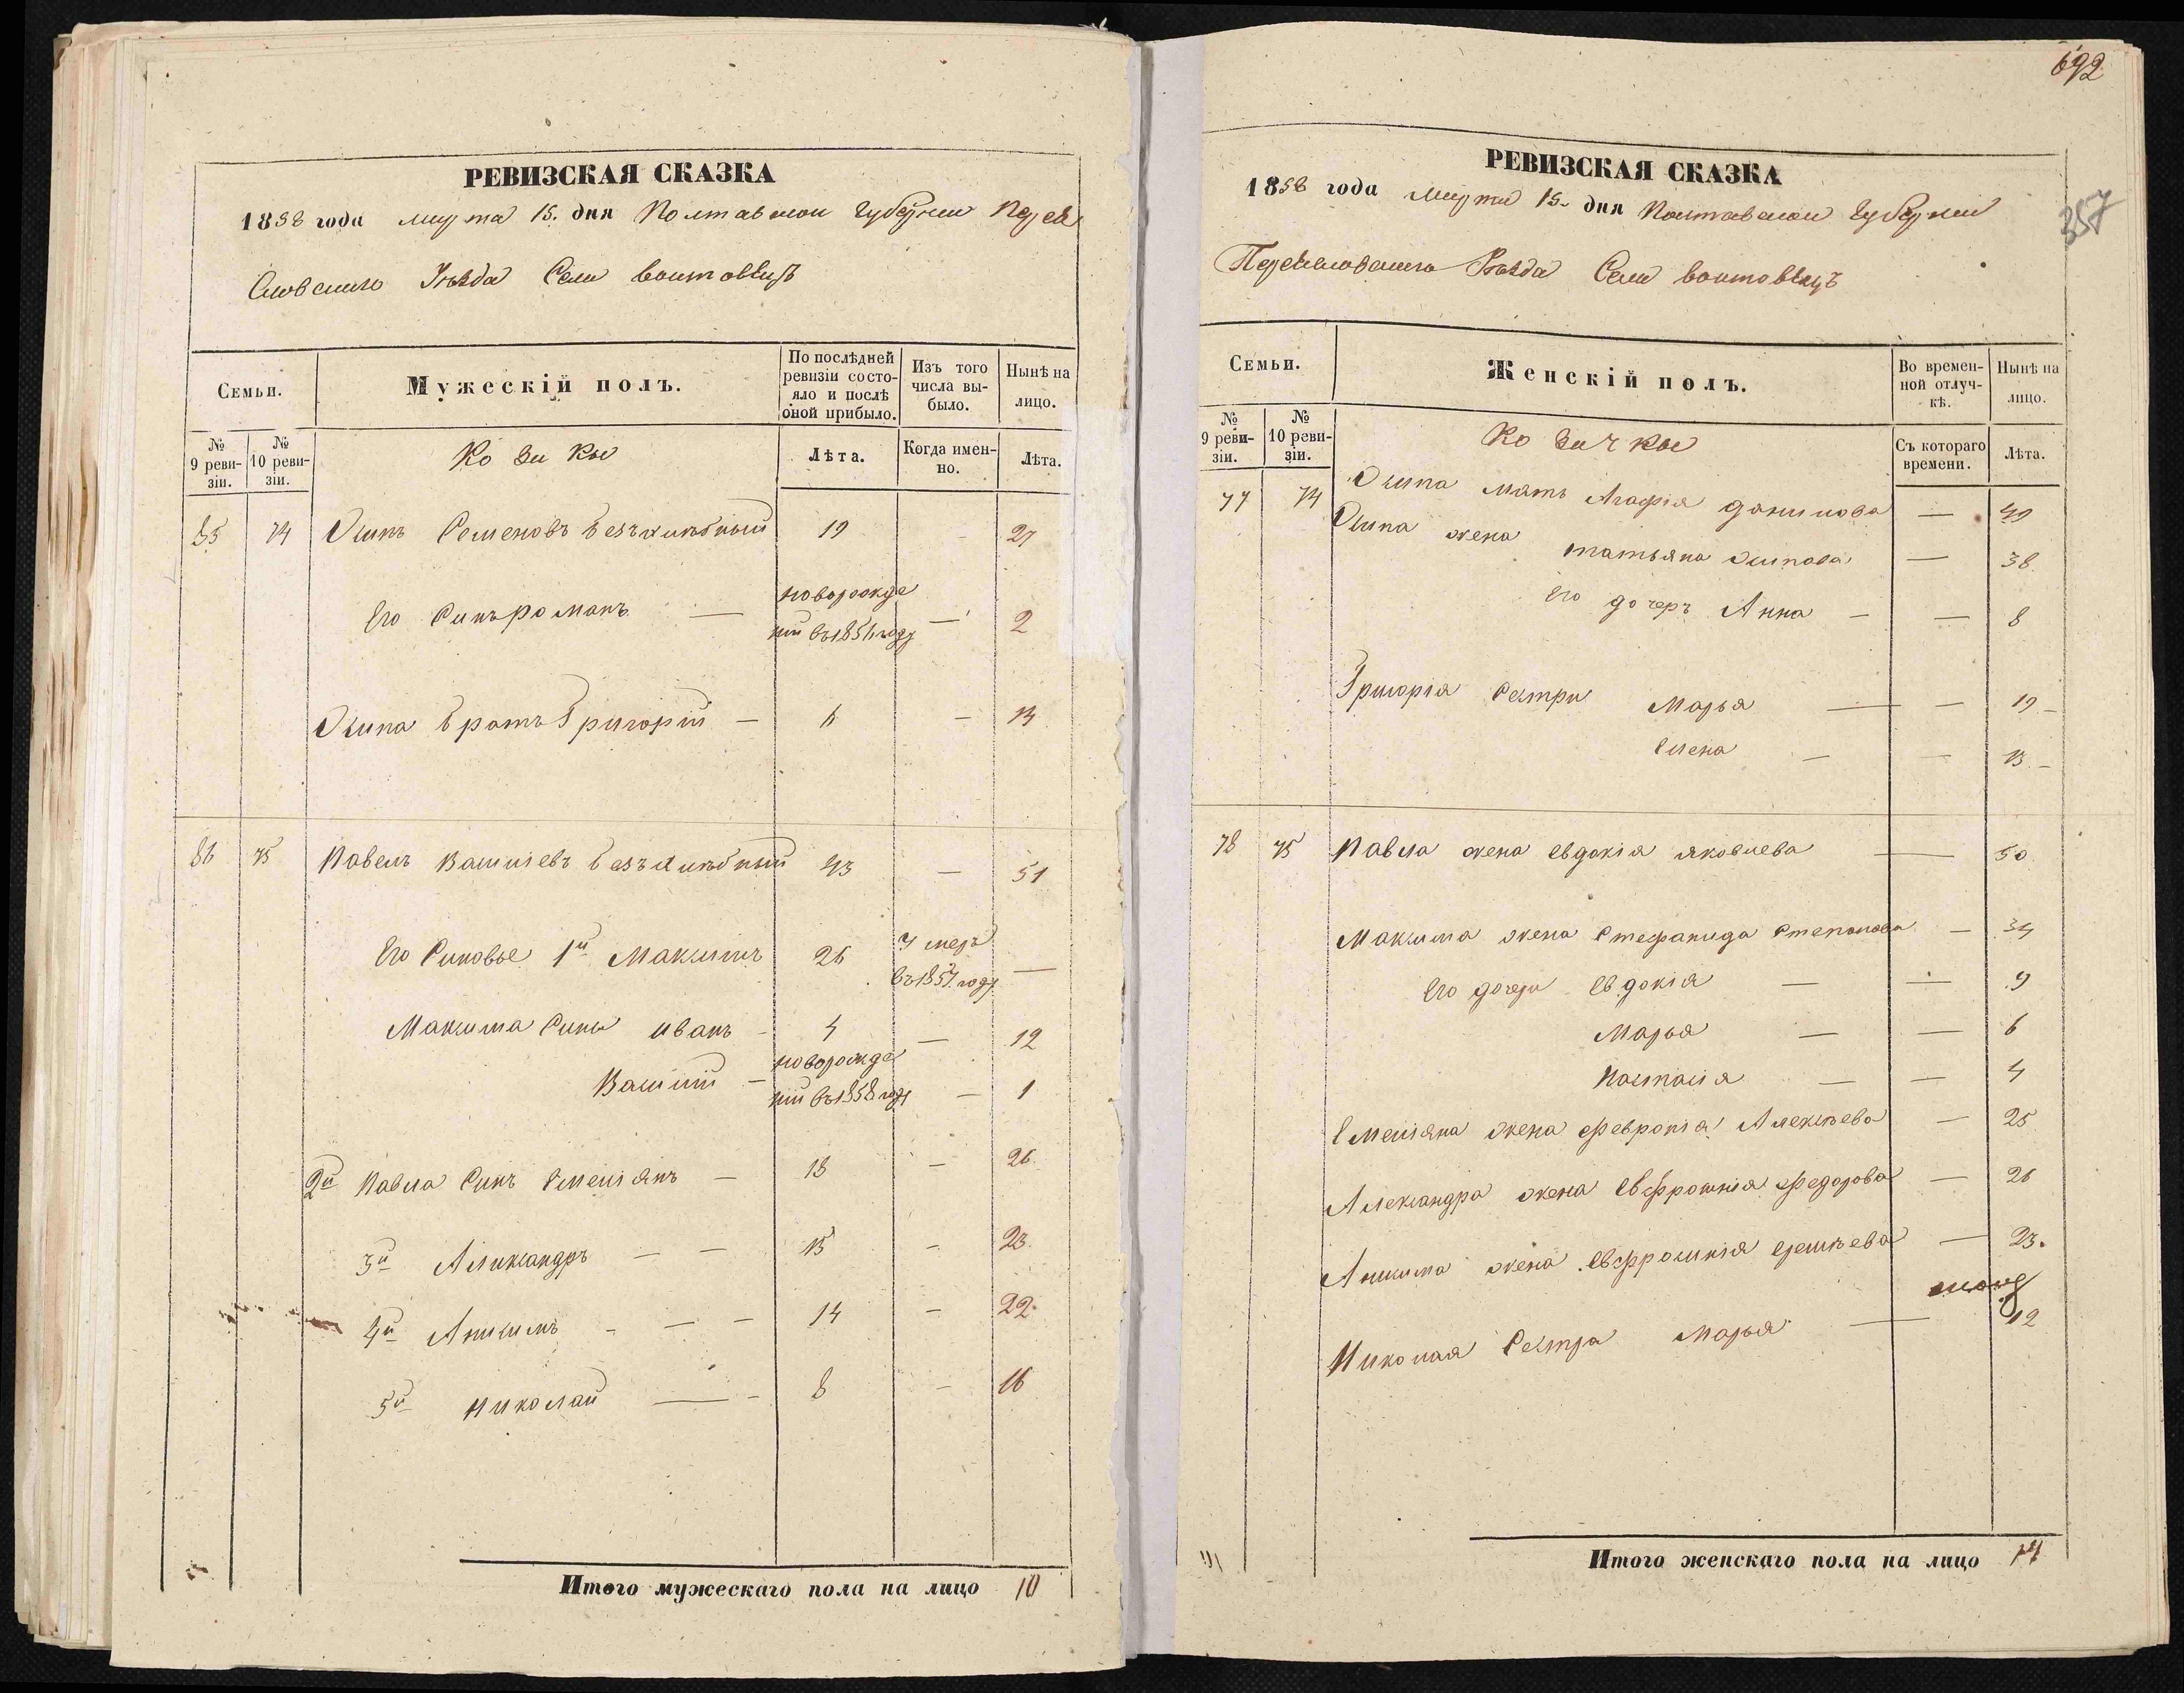 РЕВИЗСКАЯ СКАЗКА
1858 года марта 15. дня Полтавской Губернии Переяс
ловского Уѣзда Села Воитовецъ
Семьи.
Мужескій полъ.
По послѣдней ревизіи состояло и послѣ оной прибыло.
Изъ того числа выбыло.
Нынѣ на лицо.
№ 9 ревизіи.
№ 10 ревизіи.
Козаки
Лѣта.
Когда именно.
Лѣта.
85 74 Осипъ Семеновъ Безхлѣбный 19 - 27
Его Синъ Романъ — новорожде
ний въ 1856 году — 2
Осипа Братъ Григорій — 6 — 14
86 75 Павелъ Василіевъ Безхлѣбный 43 — 51
Его Синовье 1й Максимъ 26 Умеръ
въ 1857 году —
Максима Сины Иванъ - 4 — 12
Василій — новорожде
ний въ 1858 году — 1
2й Павла Синъ Емеліянъ — 18 — 26
3й Александръ — — 15 - 23.
4й Анисимъ - — — 14 - 22.
5й Николай — - 8 - 16
Итого мужескаго пола на лицо 10
692
357
РЕВИЗСКАЯ СКАЗКА
1858 года марта 15. дня Полтавской Губернии
Переясловского Уѣзда Села Воитовецъ
Семьи.
Женскій полъ.
Во временной отлучкѣ.
Нынѣ на лицо.
№ 9 ревизіи.
№ 10 ревизіи.
Козачки
Съ котораго времени.
Лѣта.
77 74 Осипа мать Агафія Данилова — 49
Осипа жена Татьяна Осипова — 38
Его дочеръ Анна — — 8
Григорія Сестри Марья — — 19 -
Елена — — 13 -
78 75 Павла жена Евдокія Яковлева — 50
Максима жена Стефанида Степанова — 34
Его дочери Евдокія — — 9
Марья — — 6
Настасія — — 4
Емеліяна жена Февронія Алексѣева — 25
Александра жена Евфросинія Федорова — 26
Анисима жена Евфросинія — 23.
Николая Сестра Марья — 12
Итого женскаго пола на лицо 14